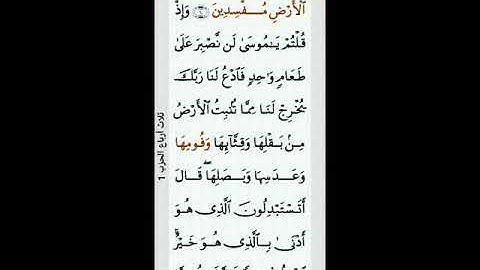 ٱلْأَرْضِ مُفْسِدِينَ ۝ وَإِذْ
قُلْتُمْ يَـٰمُوسَىٰ لَن نَّصْبِرَ عَلَىٰ
طَعَامٍ وَٰحِدٍ فَٱدْعُ لَنَا رَبَّكَ
يُخْرِجْ لَنَا مِمَّا تُنۢبِتُ ٱلْأَرْضُ
مِنۢ بَقْلِهَا وَقِثَّآئِهَا وَفُومِهَا
وَعَدَسِهَا وَبَصَلِهَا ۖ قَالَ
أَتَسْتَبْدِلُونَ ٱلَّذِى هُوَ
أَدْنَىٰ بِٱلَّذِى هُوَ خَيْرٌ ۚ
ثلاث أرباع الحزب 1